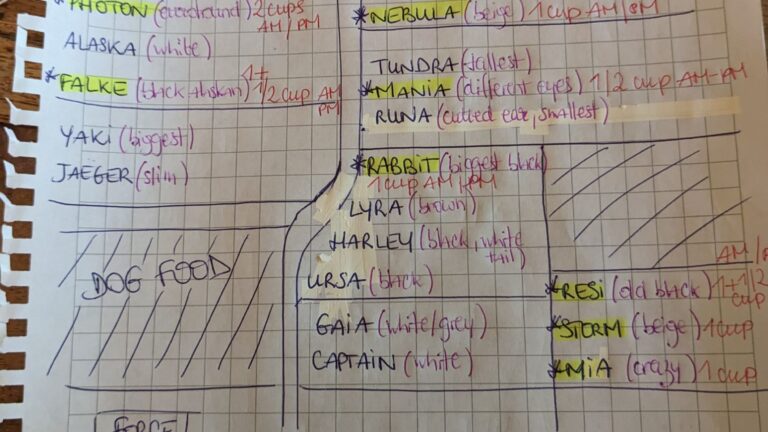 *PHOTON (greenhound) 2 cups
AM/PM
ALASKA (white)
*FALKE (black+huskan) 1+
1/2 cup AM
PM
YAKI (biggest)
JAEGER (slim)
DOG FOOD
*NEBULA (beige) 1 cup AM/PM
TUNDRA (tallest)
*MANIA (different eyes) 1/2 cup AM-PM
RUNA (cutted ear, smallest)
*RABBIT (biggest black)
1 cup AM/PM
LYRA (brown)
HARLEY (black, white
tail)
URSA (black)
GAIA (white/grey)
CAPTAIN (white)
AM/P
*RESI (old black) 1+1/2
cup
*STORM (beige) 1 cup
*MIA (crazy) 1 cup